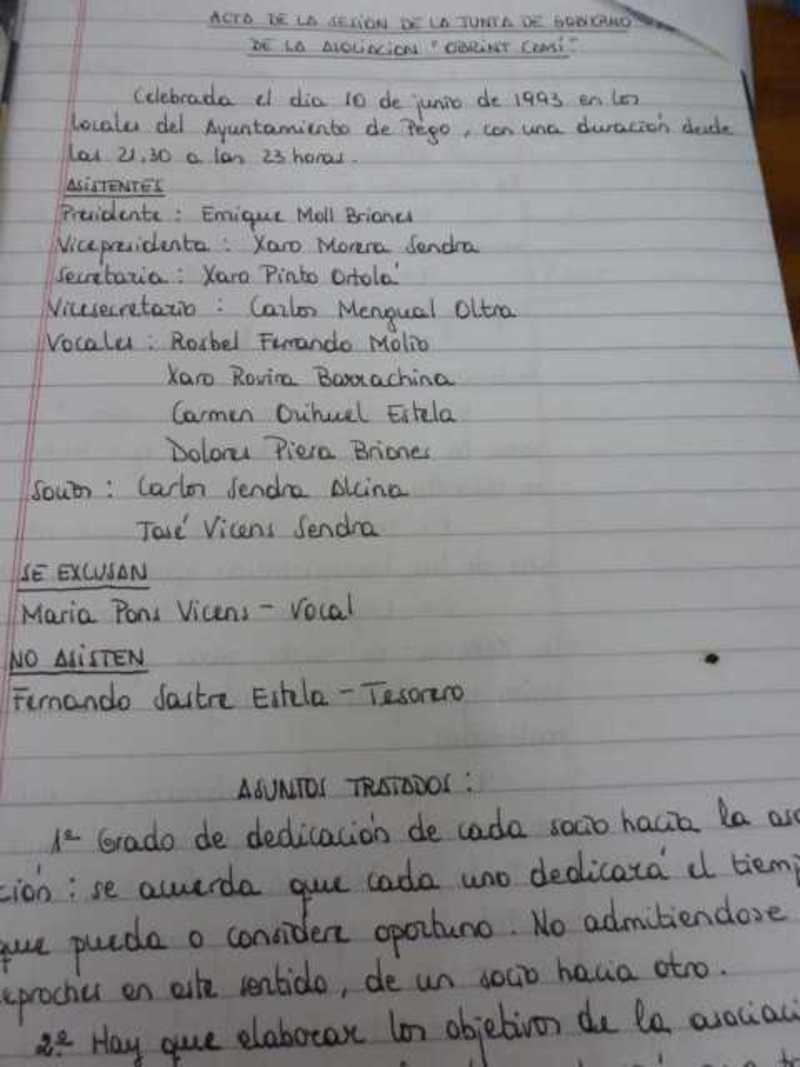 ACTA DE LA SESIÓN DE LA JUNTA DE GOBIERNO
DE LA ASOCIACION "OBRINT CAMÍ"
Celebrada el dia 10 de junio de 1993 en los
locales del Ayuntamiento de Pego, con una duración desde
las 21,30 a las 23 horas.
ASISTENTES
Presidente : Enrique Moll Briones
Vicepresidenta : Xaro Morera Sendra
Secretaria : Xaro Pinto Ortolá
Vicesecretario : Carlos Mengual Oltra
Vocales : Rosbel Ferrando Molió
Xaro Rovira Barrachina
Carmen Orihuel Estela
Dolores Piera Briones
Socios : Carlos Sendra Alcina
José Vicens Sendra
SE EXCUSAN
Maria Pons Vicens - Vocal
NO ASISTEN
Fernando Sastre Estela - Tesorero
ASUNTOS TRATADOS :
1º Grado de dedicación de cada socio hacia la aso
ción : se acuerda que cada uno dedicará el tiemp
que pueda o considere oportuno. No admitiendose
eproches en este sentido, de un socio hacia otro.
2º Hay que elaborar los objetivos de la asociaci